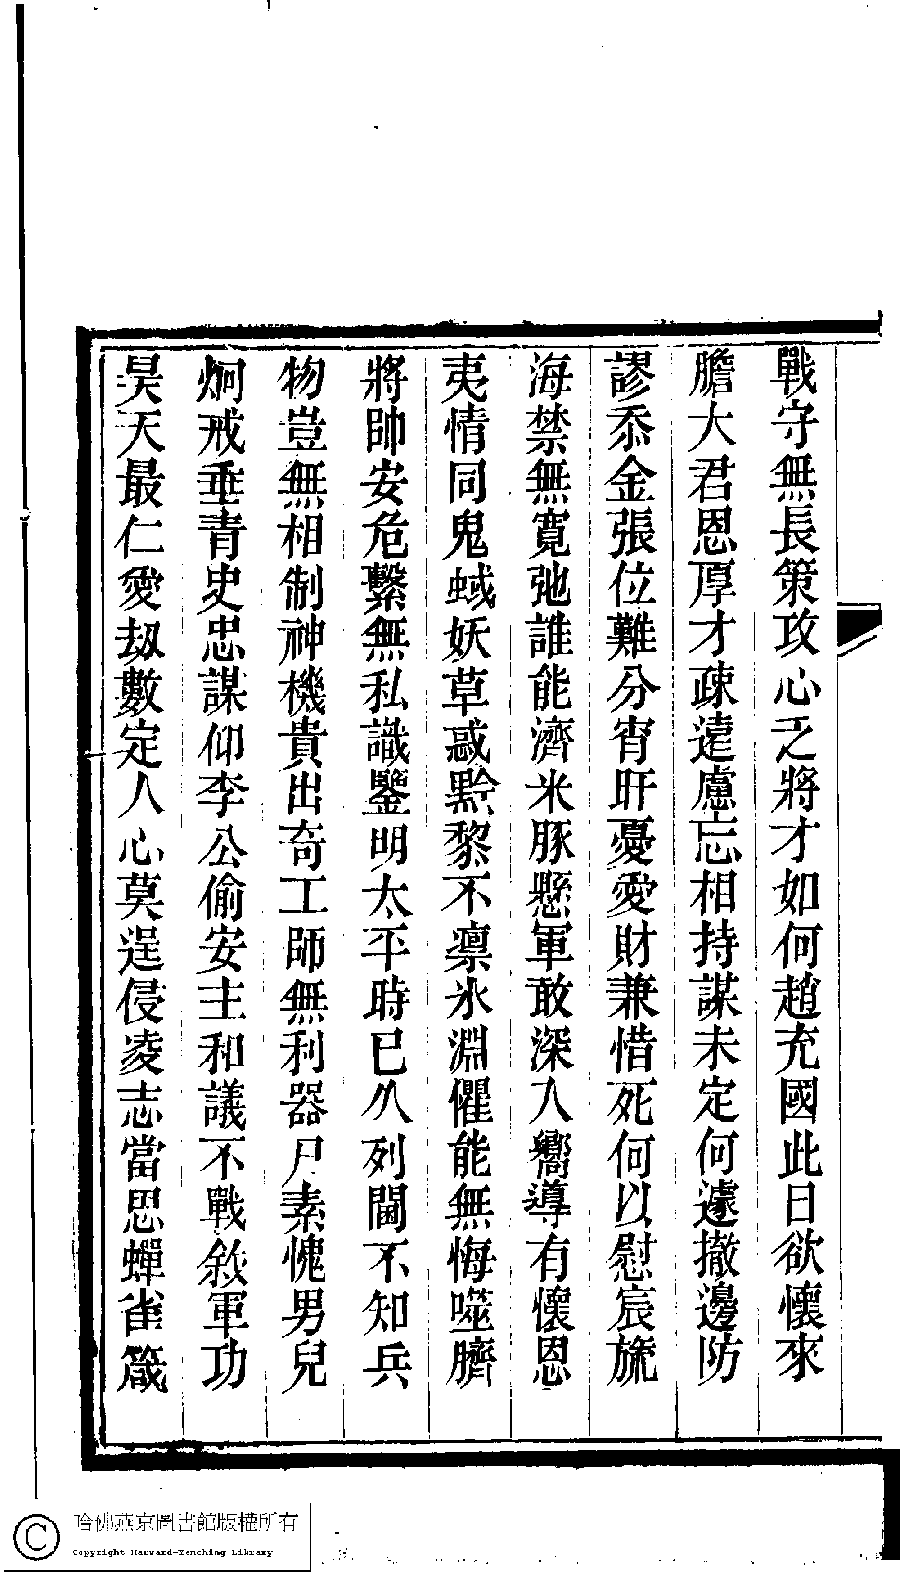 戰守無長策攻心乏將才如何趙充國此日欲懷來
膽大君恩厚才疎遠慮忘相持謀未定何遽撤邊防
謬忝金張位難分宵旰憂愛財兼惜死何以慰宸旒
海禁無寬弛誰能濟米豚懸軍敢深入嚮導有懷恩
夷情同鬼蜮妖草惑黔黎不凛氷淵懼能無悔噬臍
將帥安危繫無私識鑒明太平時已久列閫不知兵
物豈無相制神機貴出奇工師無利器尸素愧男兒
炯戒垂青史忠謀仰李公偷安主和議不戰敘軍功
昊天最仁愛劫數定人心莫逞侵凌志當思蟬雀箴
哈佛燕京圖書館版權所有
Copyright Harvard-Yenching Library